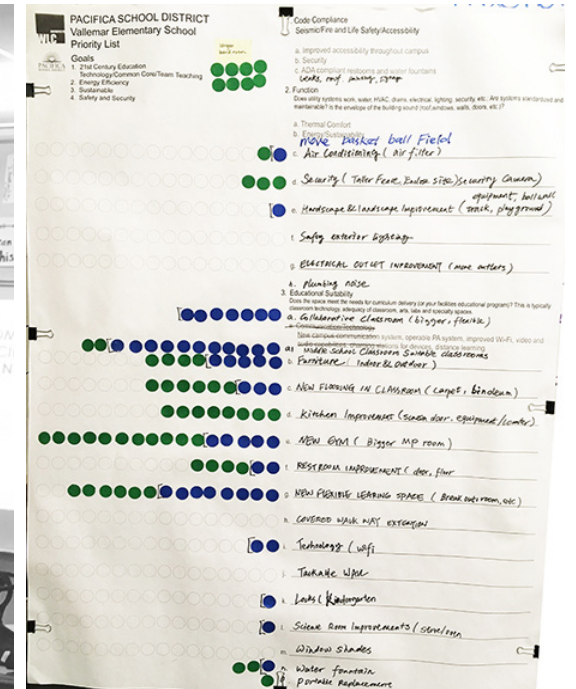 PACIFICA SCHOOL DISTRICT
Vallemar Elementary School
Priority List
WLC
PACIFICA
Goals
1. 21st Century Education
Technology/Common Core/Team Teaching
2. Energy Efficiency
3. Sustainable
4. Safety and Security
Code Compliance
Seismic/Fire and Life Safety/Accessibility
a. Improved accessibility throughout campus
b. Security
c. ADA compliant restrooms and water fountains
Leaks, roof,
2. Function
Does utility systems work, water, HVAC, drains, electrical, lighting, security, etc. Are systems standardized and
maintainable? Is the envelope of the building sound (roof, windows, walls, doors, etc)?
a. Thermal Comfort
b. Energy/Sustainability
move basket ball Field
c. Air Conditioning (air filter)
d. Security (Taller Fence, Enclose Site) security Camera)
equipment, ball wall
e. Hardscape & landscape Improvement (track, playground)
f. Safety exterior lighting
g. ELECTRICAL OUTLET IMPROVEMENT (more outlets)
h. plumbing noise
3. Educational Suitability
Does the space meet the needs for curriculum delivery (or your facilities educational programs)? This is typically
classroom technology, adequacy of classroom, arts, labs and specialty spaces.
a. Collaborative Classroom (bigger, flexible)
a. Communication Technology
New campus communication system, operable PA system, improved Wi-Fi, video and
audio capabilities, charging stations for devices, distance learning
Middle School Classroom Suitable classrooms
b. Furniture (Indoor & Outdoor)
c. NEW FLOORING IN CLASSROOM (carpet, linoleum)
d. Kitchen Improvement (screen door, equipment/counter)
e. NEW GYM (Bigger MP room)
f. RESTROOM IMPROVEMENT (door, floor
g. NEW FLEXIBLE LEARING SPACE (Break outs room, etc)
h. COVERED WALK WAY EXTENTION
i. Technology (wifi
j. Tackable Wall
k. Locks (Kindergarten
l. Science Room Improvements (
m. Window Shades
n. Water fountain
portable Replacement